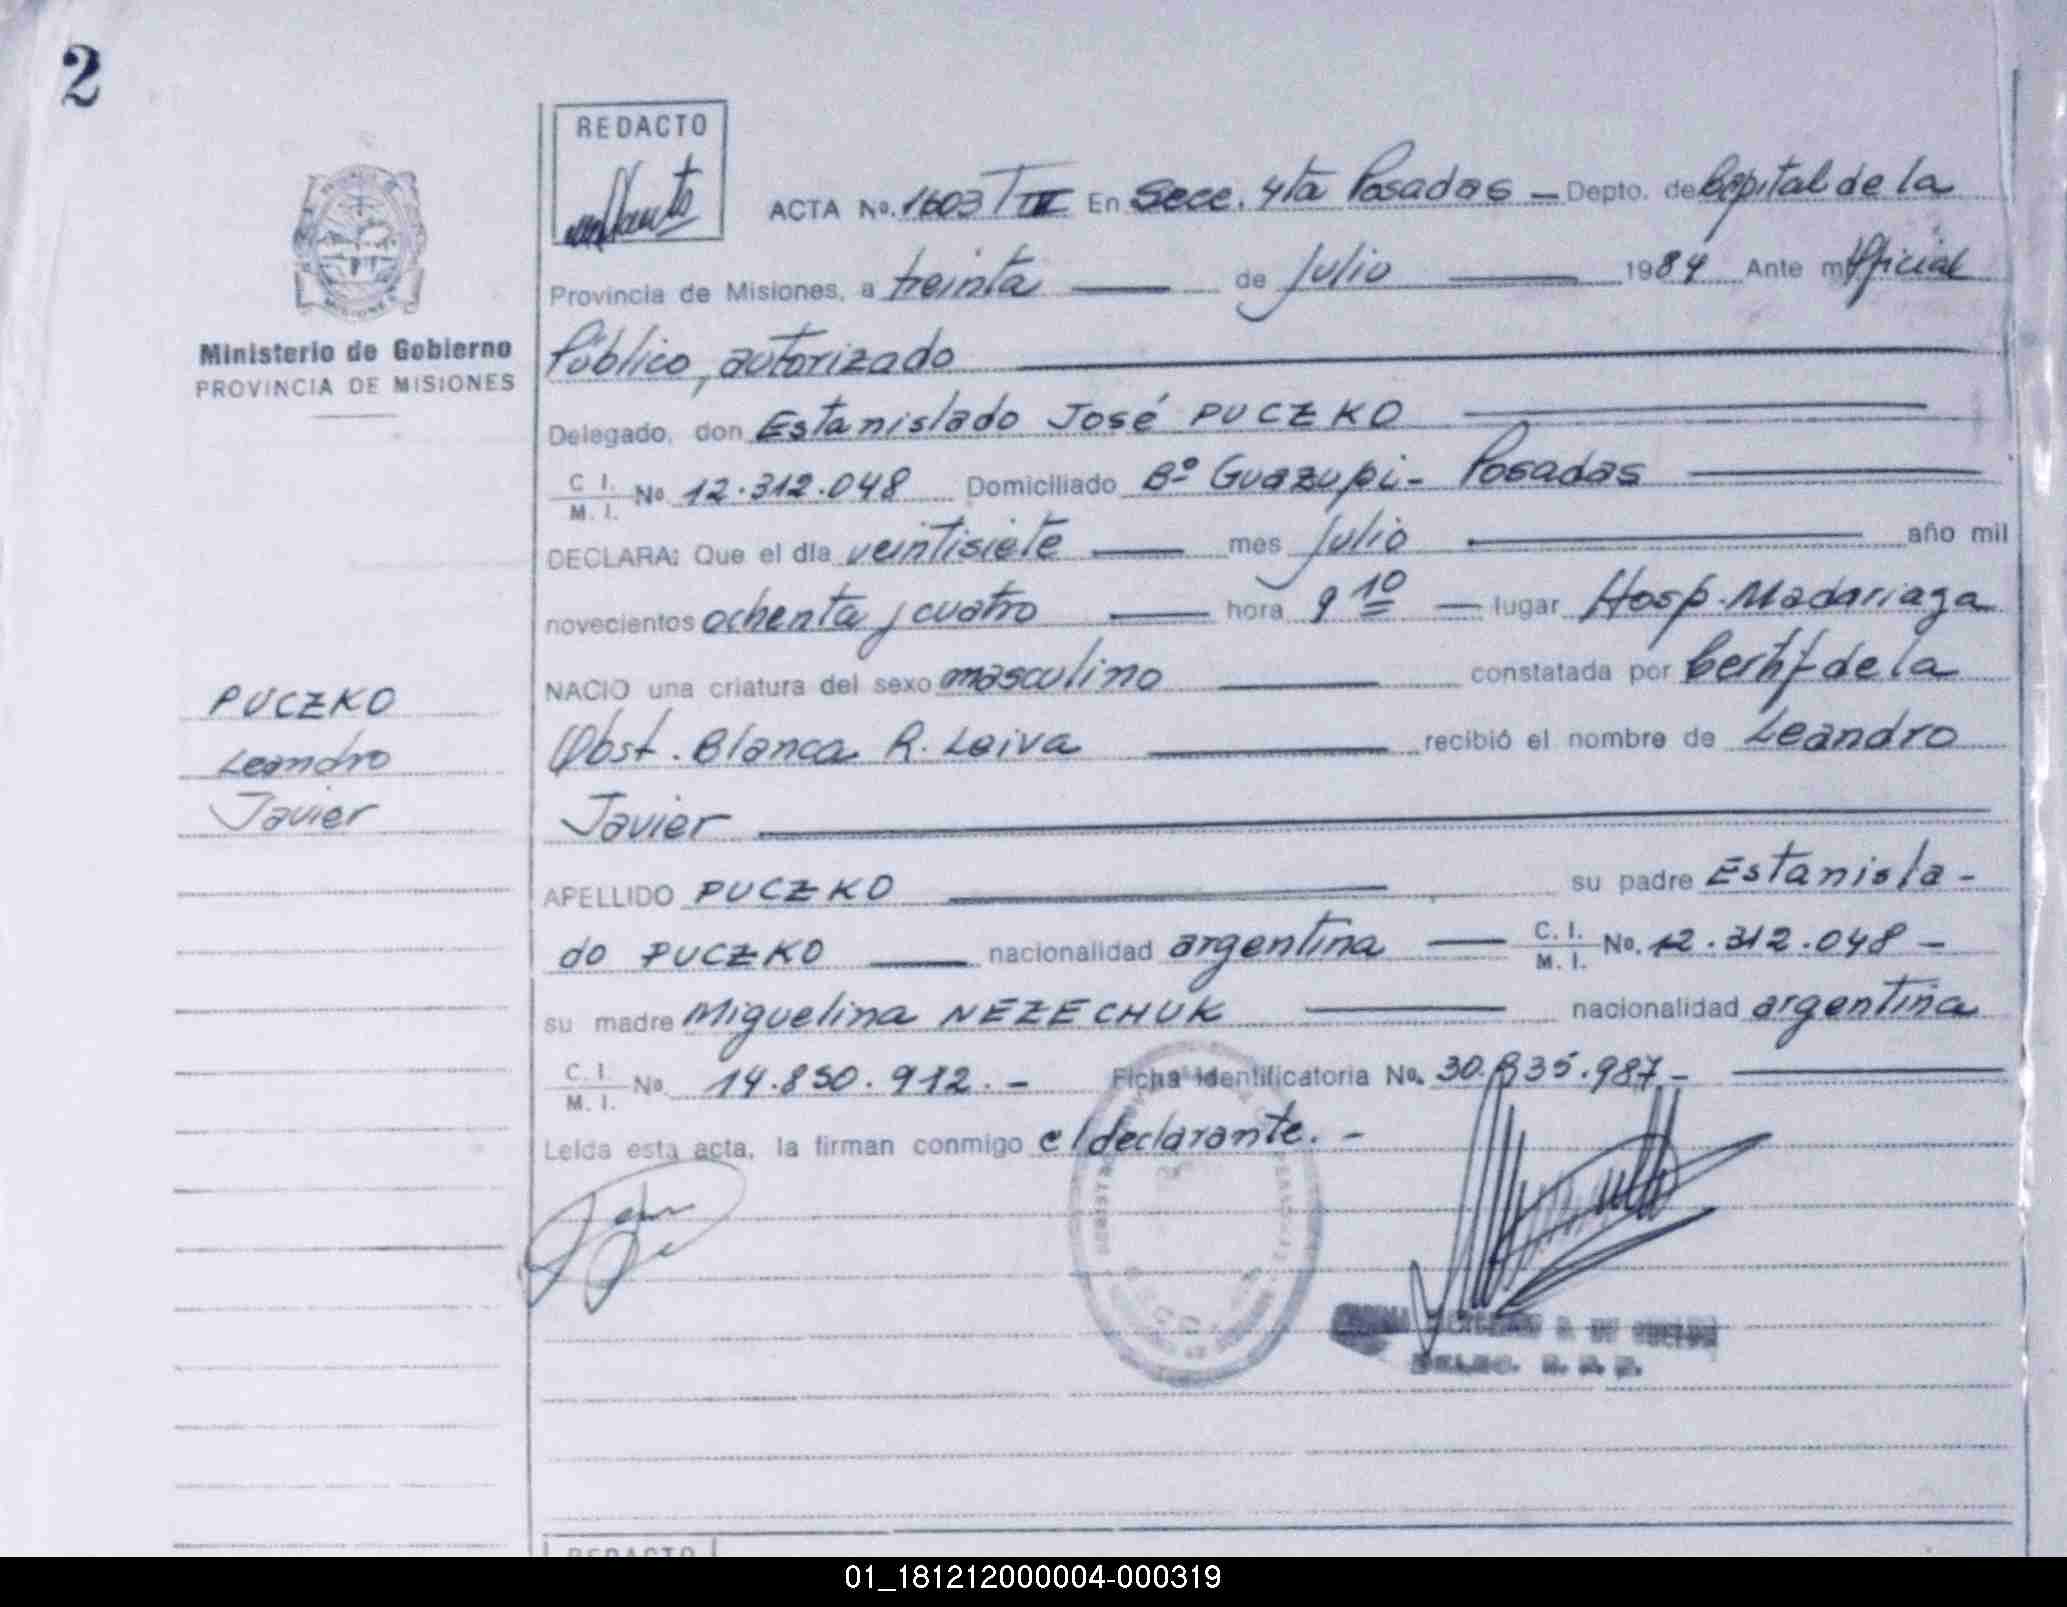 2
REDACTO
ACTA No. 1603 T III En Secc. 4ta Posadas — Depto. de Capital de la
Provincia de Misiones, a treinta — de Julio — 1984 Ante mí Oficial
Ministerio de Gobierno
PROVINCIA DE MISIONES
Público, autorizado
Delegado, don Estanislado José PUCZKO
C. I. M. I. No 12.312.048 Domiciliado Bº Guazupi - Posadas
DECLARA: Que el día veintisiete — mes Julio — año mil
novecientos ochenta y cuatro — hora 9 10 — lugar Hosp. Madariaga
NACIO una criatura del sexo masculino — constatada por Certif de la
Obst. Blanca R. Leiva — recibió el nombre de Leandro
Javier
PUCZKO
Leandro
Javier
APELLIDO PUCZKO — su padre Estanisla-
do PUCZKO — nacionalidad argentina — C. I. M. I. No. 12.312.048 -
su madre Miguelina NEZECHUK — nacionalidad argentina
C. I. M. I. No. 14.850.912. - Ficha Identificatoria No. 30.835.987 -
Leída esta acta, la firman conmigo el declarante. -
REDACTO
01_181212000004-000319